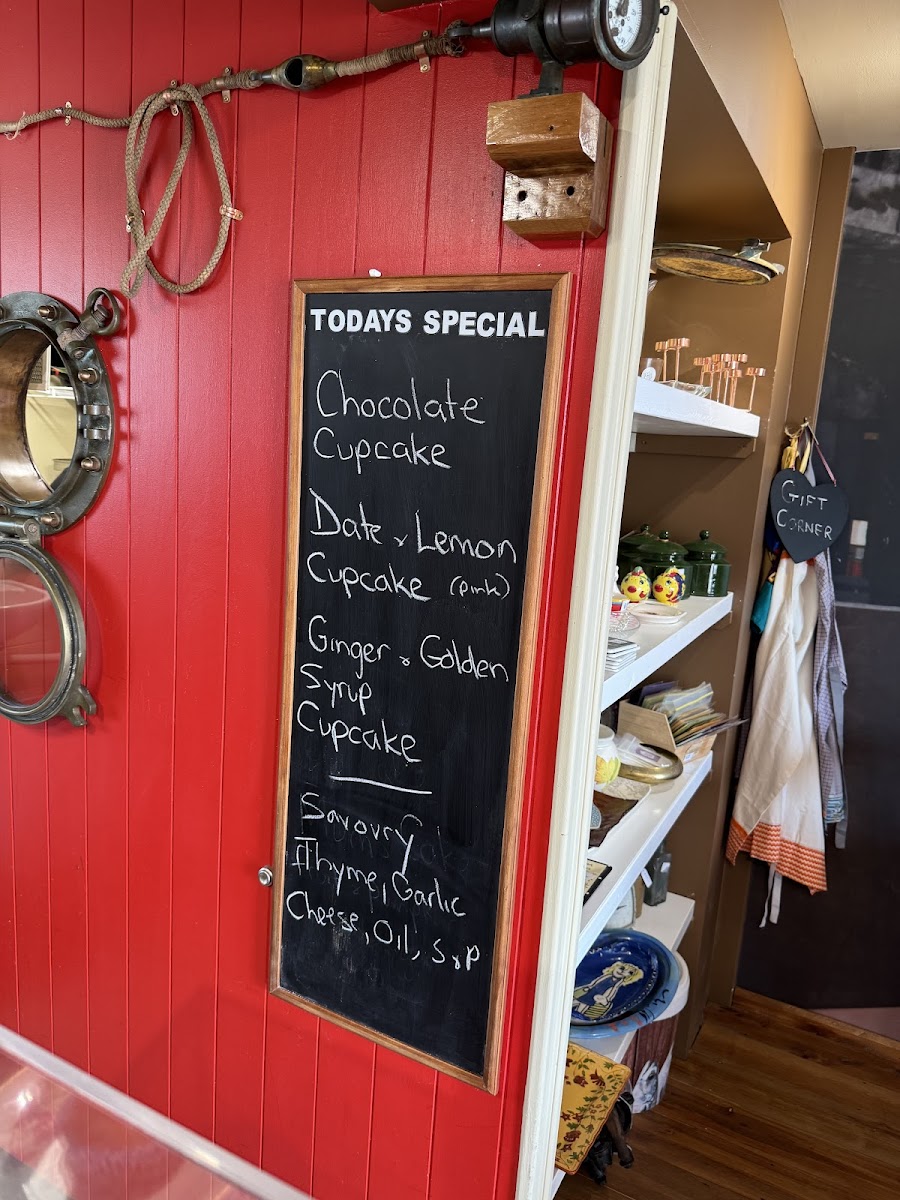 TODAYS SPECIAL
Chocolate
Cupcake
Date & Lemon
Cupcake (pink)
Ginger & Golden
Syrup
Cupcake
Savoury
Thyme, Garlic
Cheese, Oil, S&P
GIFT
CORNER